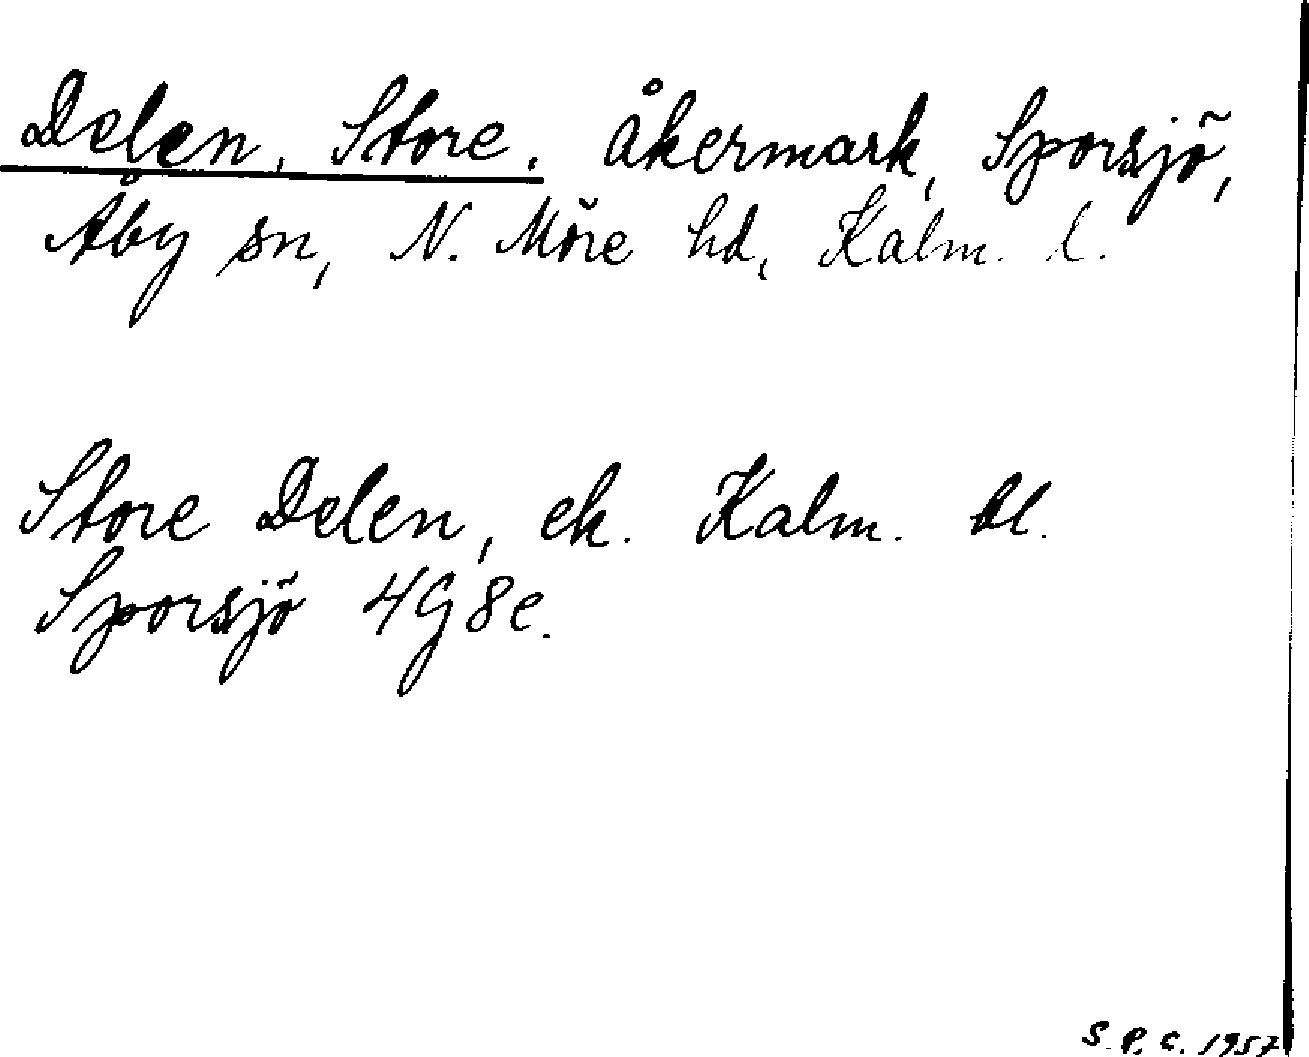 Delen, Store. åkermark, Sporsjö,
Åby sn, N. Möre hd, Kalm. l.
Store Delen, ek. Kalm. bl.
Sporsjö 4G8e.
S. P. C. 1957